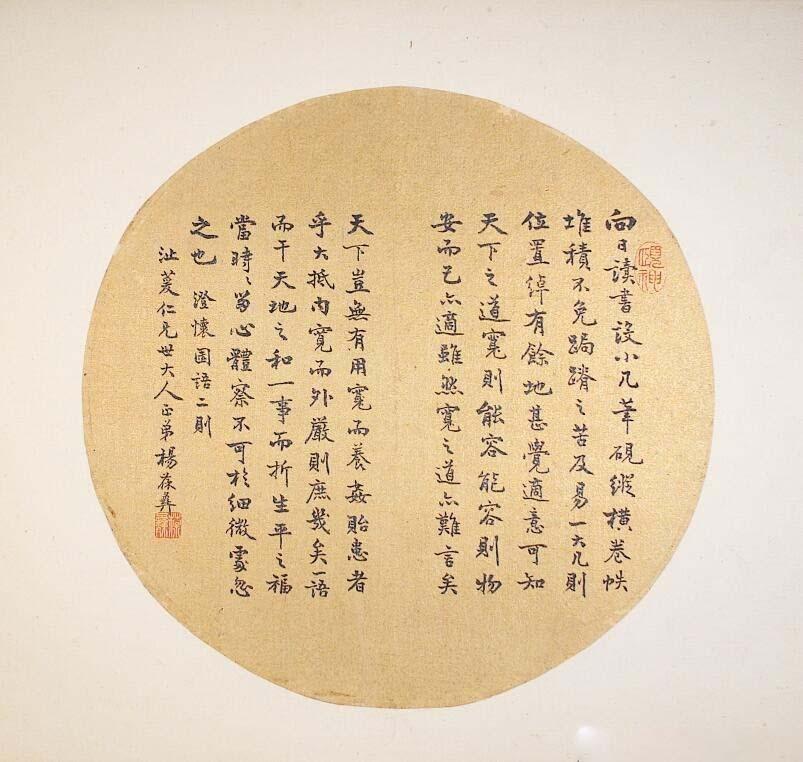 向日讀書設小几筆硯縱橫卷帙
堆積不免跼蹐之苦及易一大几則
位置綽有餘地甚覺適意可知
天下之道寬則能容能容則物
安而己亦適雖然寬之道亦難言矣
天下豈無有用寬而養姦貽患者
乎大抵內寬而外嚴則庶幾矣一語
而干天地之和一事而折生平之福
當時時留心體察不可於細微處忽
之也 澄懷園語二則
沚菱仁兄世大人正弟楊葆彝